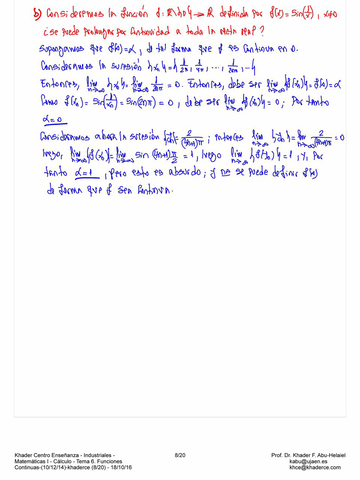 b) Consideremos la función f: ℝ\{0} → ℝ definida por f(x) = sin(1/x), x≠0
¿se puede prolongar por continuidad a toda la recta real?
Supongamos que f(0)=α, de tal forma que f es continua en 0.
Consideremos la sucesión {xₙ} = { 1/2π, 1/4π, ..., 1/2nπ, ... }
Entonces, lim n→∞ {xₙ} = lim n→∞ 1/2nπ = 0. Entonces, debe ser lim n→∞ {f(xₙ)} = f(0) = α
Como f(xₙ) = sin(1/xₙ) = sin(2nπ) = 0, debe ser lim n→∞ {f(xₙ)} = 0; Por tanto
α = 0
Consideramos ahora la sucesión = 2/(4n+1)π; entonces lim n→∞ = lim n→∞ 2/(4n+1)π = 0
luego, lim n→∞ = lim n→∞ sin (4n+1)π/2 = 1, luego lim n→∞ = 1, y, por
tanto α = 1, pero esto es absurdo; y no se puede definir f(0)
de forma que f sea continua.
Khader Centro Enseñanza - Industriales -
Matemáticas I - Cálculo - Tema 6. Funciones
Continuas-(10/12/14)-khaderce (8/20) - 18/10/16
8/20
Prof. Dr. Khader F. Abu-Helaiel
kabu@ujaen.es
khce@khaderce.com